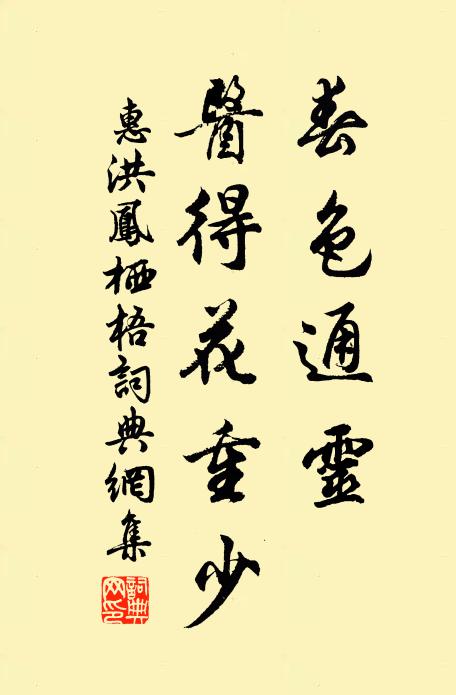 春色通靈
醫得花重少
惠洪鳳栖梧詞典網集
詞典網印